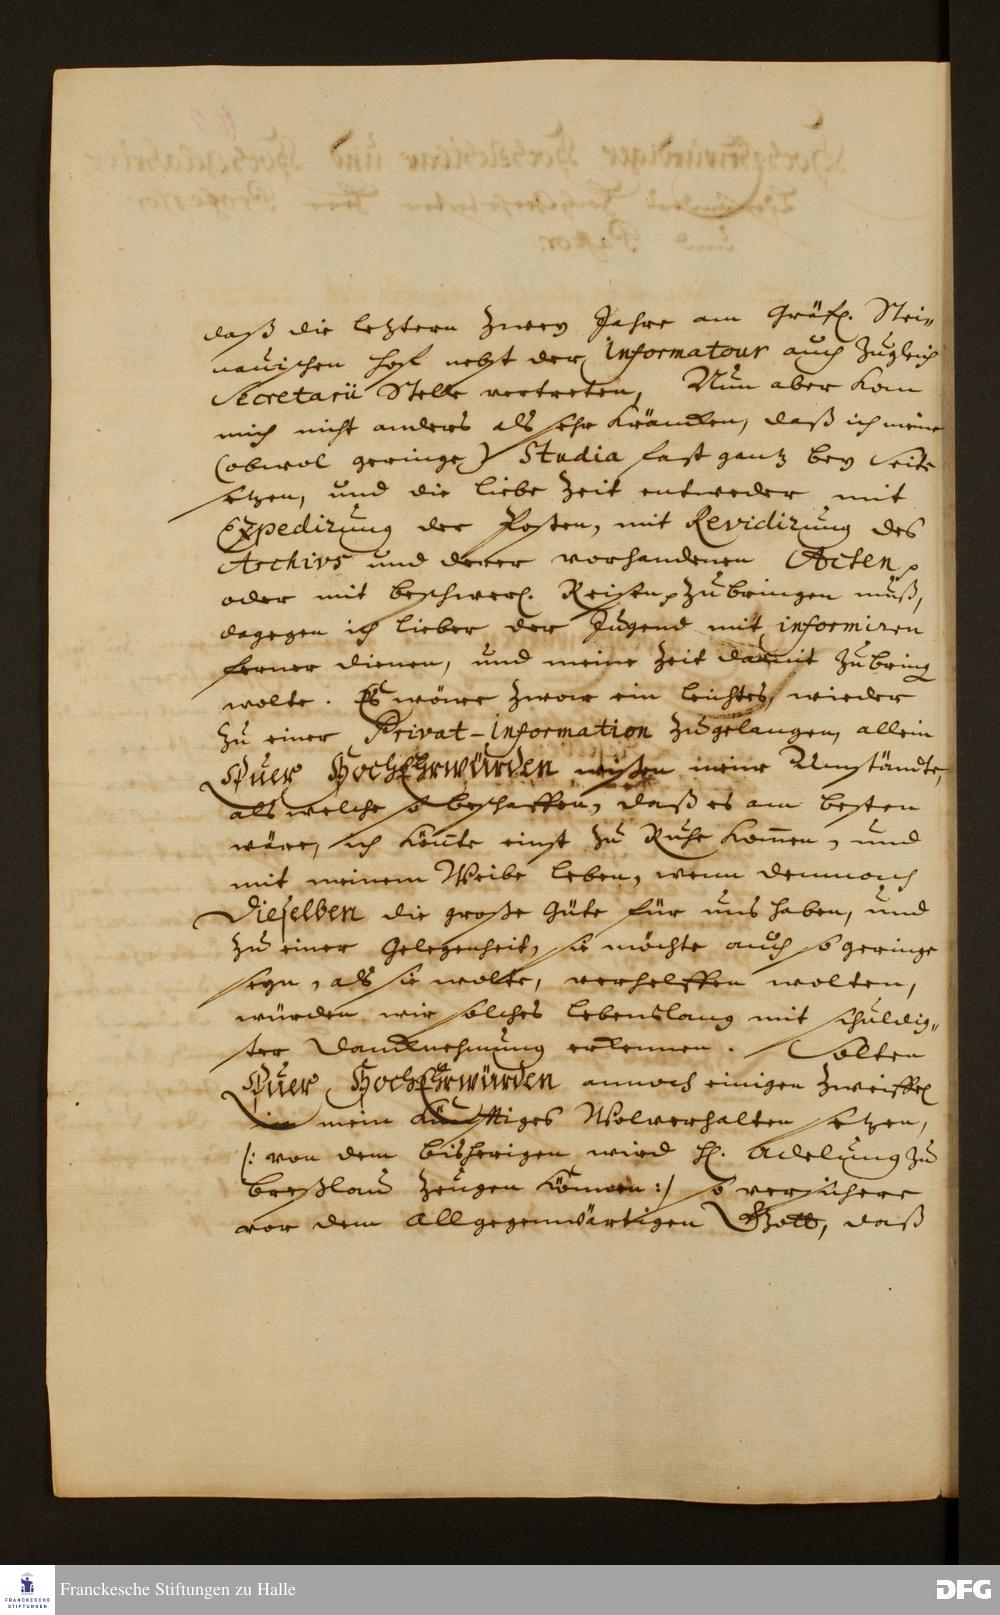 daß die letztern zwey Jahre am Gräfl. Stei„
nauischen Hof nebst der Informatour auch zugleich
Secretarii Stelle vertreten, Nun aber kan
mich nicht anders als sehr kräncken, daß ich meine
(obwol geringe) Studia fast gantz bey Seite
setzen, und die liebe Zeit entweder mit
Expedirung der Posten, mit Revidirung des
Archivs und derer vorhandenen Acten,
oder mit beschwerl. Reisen, zubringen muß,
dagegen ich lieber der Jugend mit informiren
ferner dienen, und meine Zeit damit zubring
wolte. Es wäre zwar ein leichtes, wieder
zu einer Privat-Information zugelangen, allein
Euer HochEhrwürden wißen meine Umstände,
als welche so beschaffen, daß es am besten
wäre, ich könte einst zu Ruhe kommen, und
mit meinem Weibe leben, wenn demnach
Dieselben die große Güte für uns haben, und
zu einer Gelegenheit, sie möchte auch so geringe
seyn, als sie wolte, verhelffen wolten,
würden wir solches lebenslang mit schuldig„
ster Dancknehmung erkennen. Solten
Euer HochEhrwürden annoch einigen Zweiffel
in mein künfftiges Wolverhalten setzen,
/: von dem bisherigen wird H. Adelung zu
Breßlau zeugen können :/ so versichere
vor dem allgegenwärtigen Gott, daß
Franckesche Stiftungen zu Halle
FRANCKESCHE
STIFTUNGEN
DFG